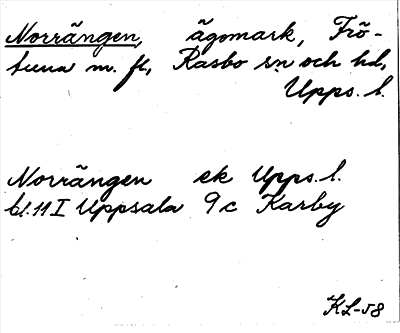 Norrängen, ägomark, Frö-
tuna m. fl, Rasbo sn och hd,
Upps. l.
Norrängen ek Upps. l.
bl. 11 I Uppsala 9c Karby
KL-58